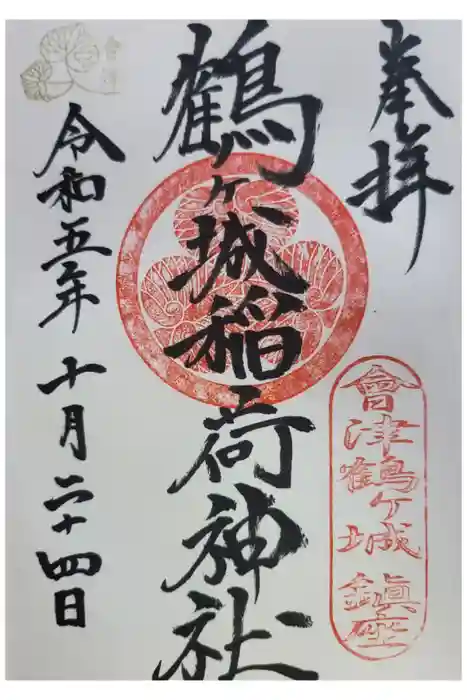 奉拝
會津鶴ヶ城鎮座
鶴ヶ城稲荷神社
令和五年十月二十四日
會津